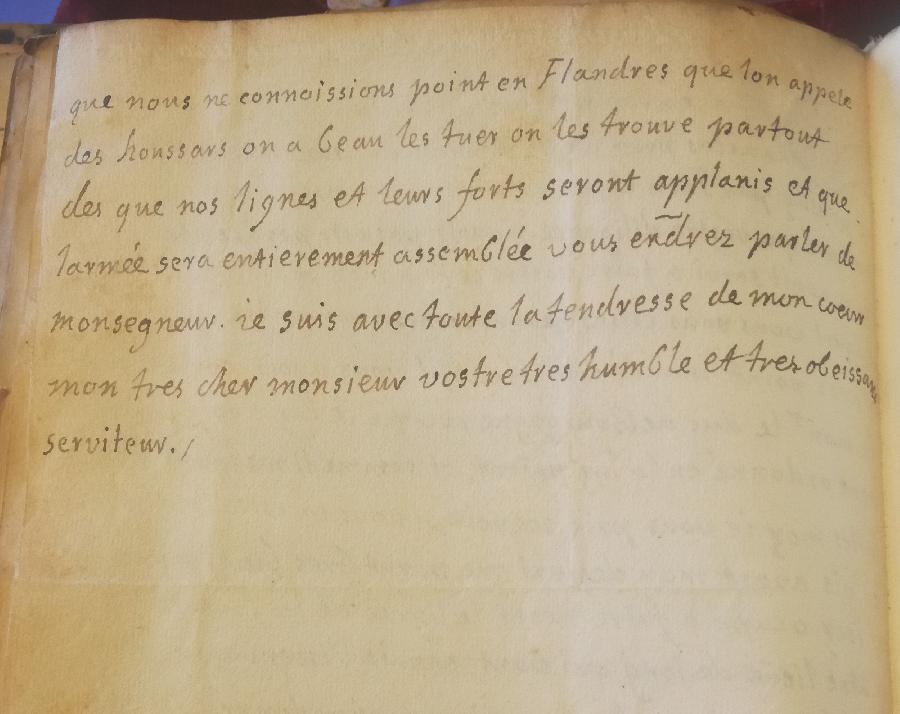 que nous ne connoissions point en Flandres que lon appele
des houssars on a beau les tuer on les trouve partout
des que nos lignes et leurs forts seront applanis et que
larmée sera entierement assemblée vous endrez parler de
monsegneur. ie suis avec toute la tendresse de mon coeur
mon tres cher monsieur vostre tres humble et tres obeissant
serviteur. /